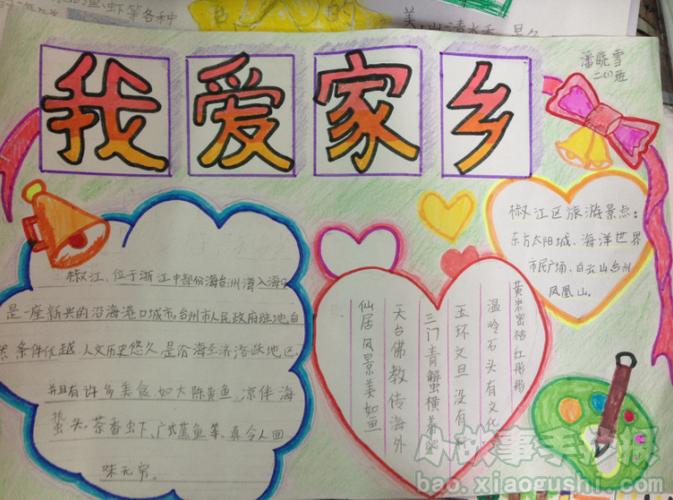 我爱家乡
潘晓雪
二(1)班
椒江、位于浙江中部份海台州湾入海口
是一座新兴的沿海港口城市,台州市人民政府驻地,自
然条件优越,人文历史悠久,是沿海经济活跃地区,
并且有许多美食,如大陈黄鱼,凉伴海
蜇头,茶香虫下、广式蒸鱼等,真令人回
味无穷。
黄岩蜜桔红彤彤
温岭石头有文化
玉环文旦没有
三门青蟹横着
天台佛教传海外
仙居风景美如画
椒江区旅游景点:
东方太阳城、海洋世界
市民广场、白云山台州
凤凰山。
小故事手抄报
bao.xiaogushi.com